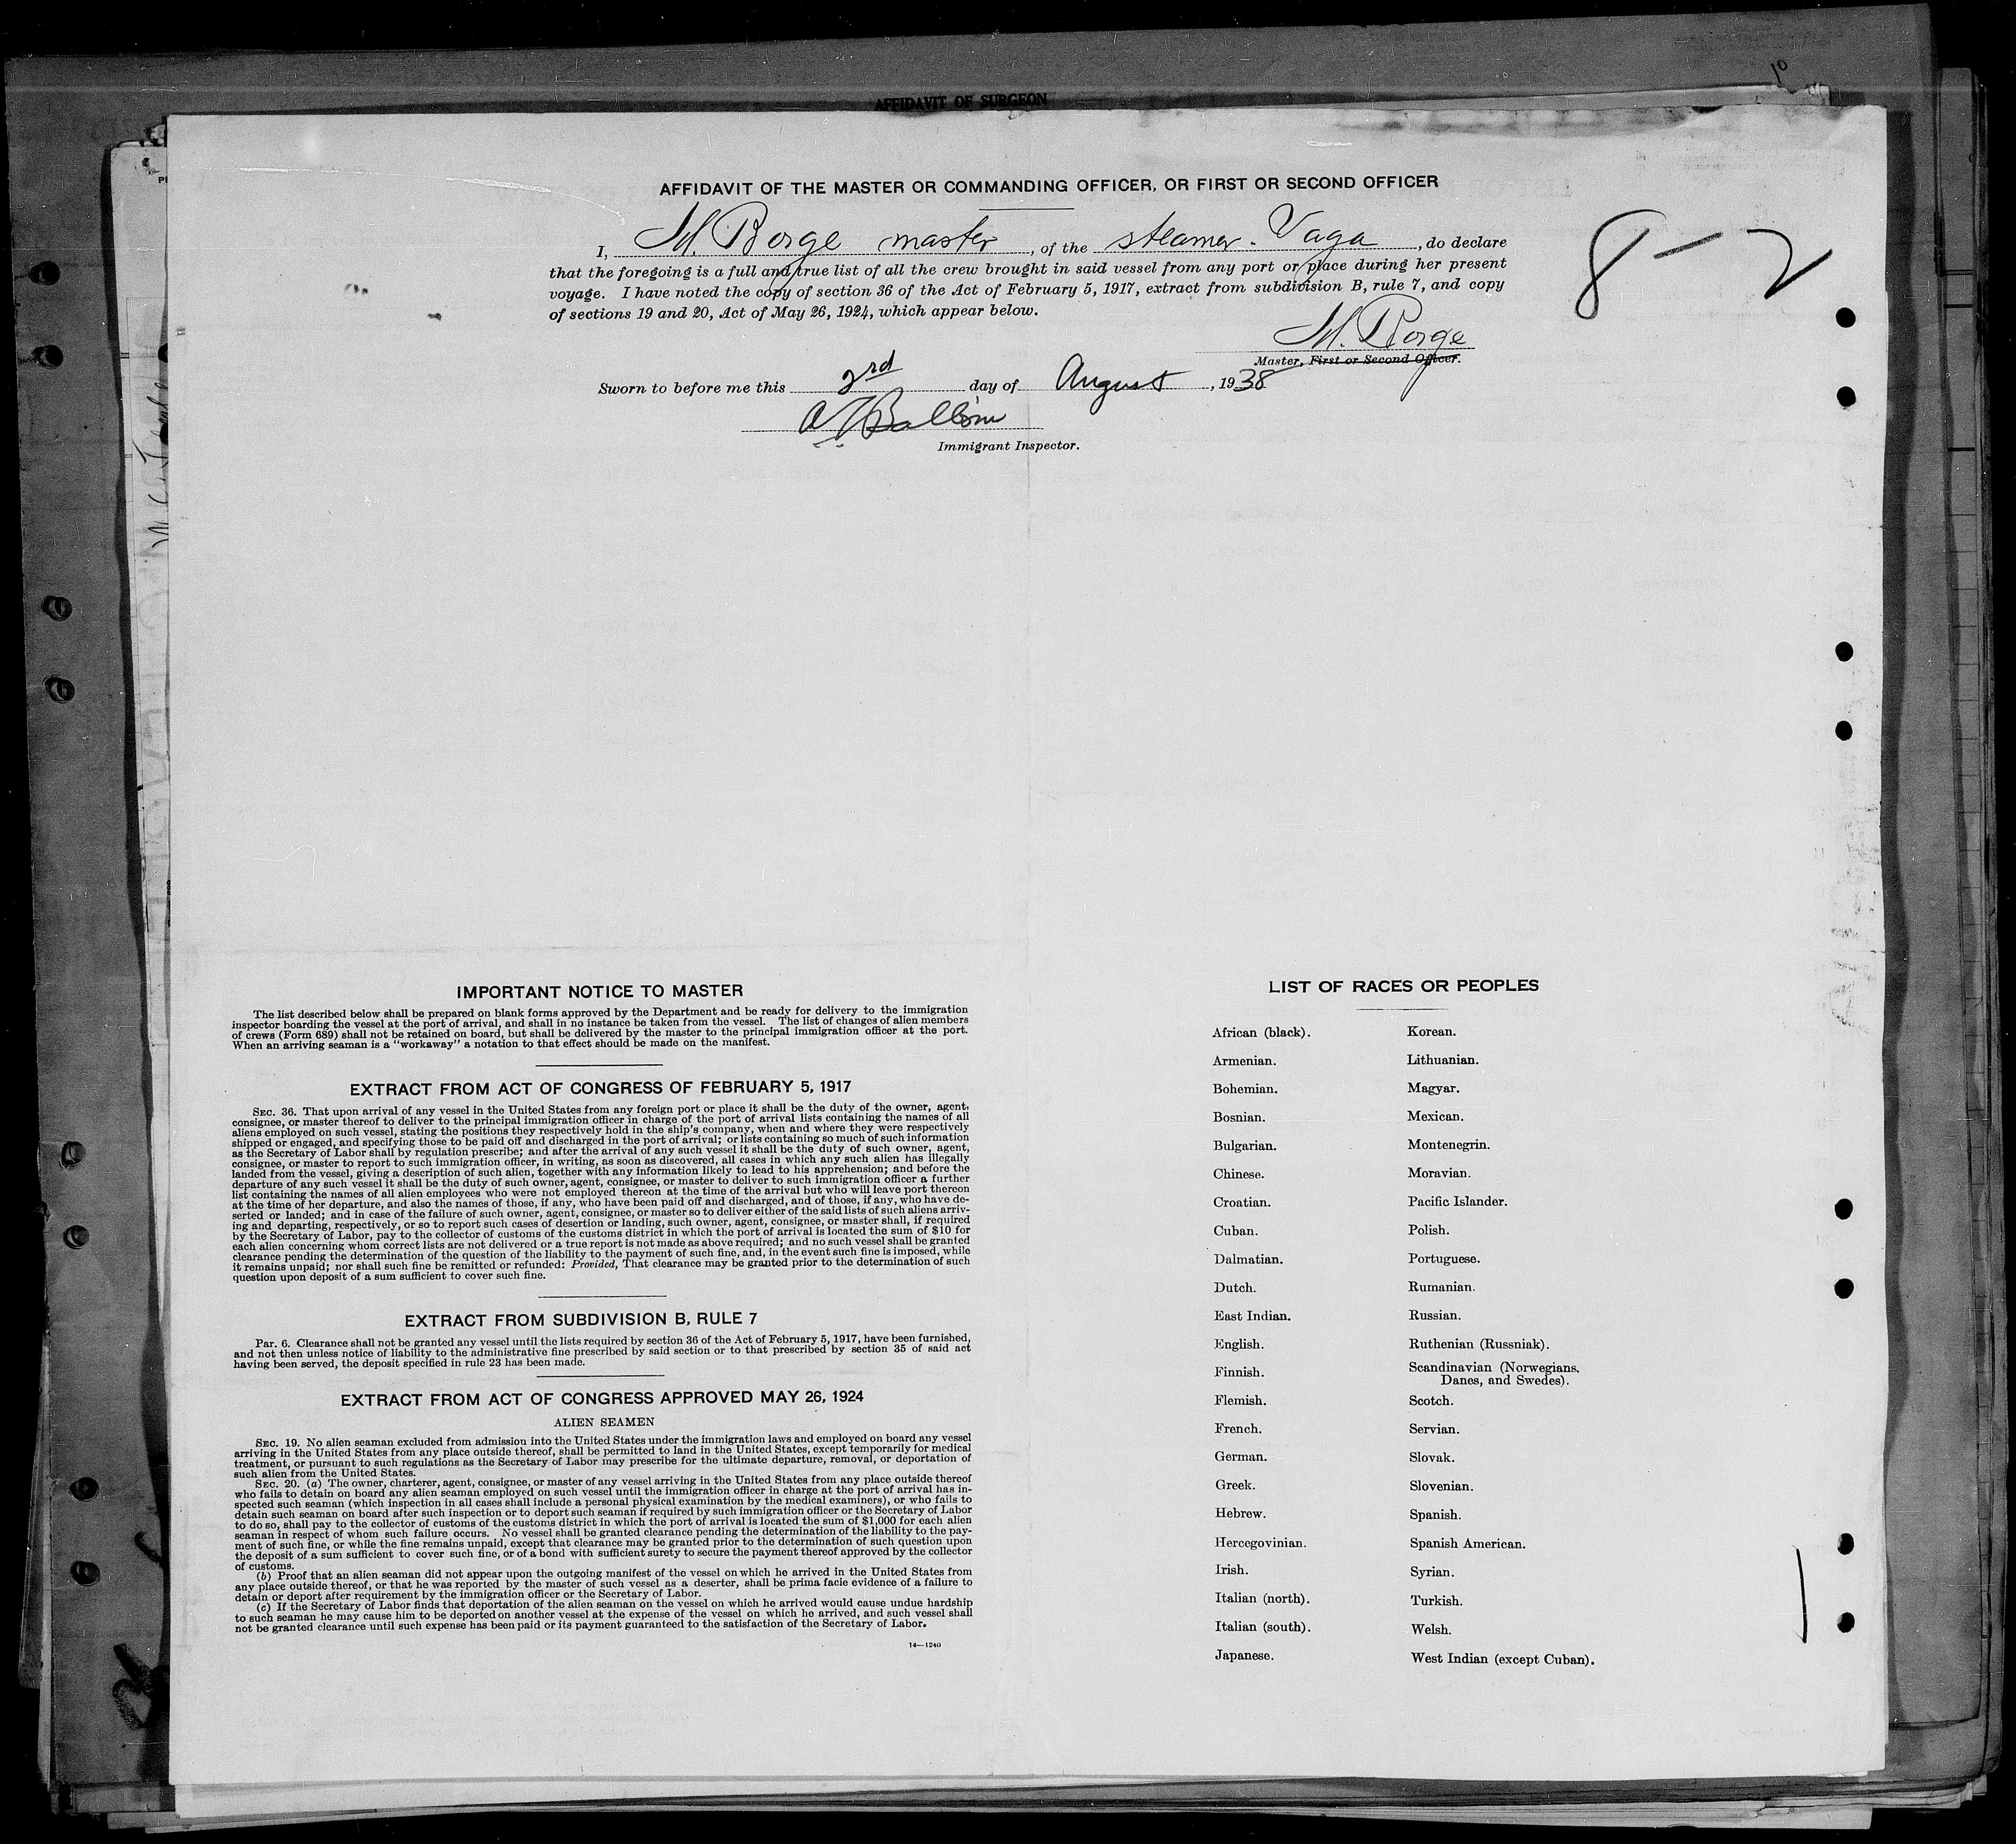 AFFIDAVIT OF SURGEON
10
AFFIDAVIT OF THE MASTER OR COMMANDING OFFICER, OR FIRST OR SECOND OFFICER
8 – 2
I, M. Borge master, of the steamer. Vaga, do declare
that the foregoing is a full and true list of all the crew brought in said vessel from any port or place during her present
voyage. I have noted the copy of section 36 of the Act of February 5, 1917, extract from subdivision B, rule 7, and copy
of sections 19 and 20, Act of May 26, 1924, which appear below.
M. Borge
Master, First or Second Officer.
Sworn to before me this 2rd day of August, 1938
Immigrant Inspector.
IMPORTANT NOTICE TO MASTER
The list described below shall be prepared on blank forms approved by the Department and be ready for delivery to the immigration
inspector boarding the vessel at the port of arrival, and shall in no instance be taken from the vessel. The list of changes of alien members
of crews (Form 689) shall not be retained on board, but shall be delivered by the master to the principal immigration officer at the port.
When an arriving seaman is a "workaway" a notation to that effect should be made on the manifest.
EXTRACT FROM ACT OF CONGRESS OF FEBRUARY 5, 1917
SEC. 36. That upon arrival of any vessel in the United States from any foreign port or place it shall be the duty of the owner, agent,
consignee, or master thereof to deliver to the principal immigration officer in charge of the port of arrival lists containing the names of all
aliens employed on such vessel, stating the positions they respectively hold in the ship's company, when and where they were respectively
shipped or engaged, and specifying those to be paid off and discharged in the port of arrival; or lists containing so much of such information
as the Secretary of Labor shall by regulation prescribe; and after the arrival of any such vessel it shall be the duty of such owner, agent,
consignee, or master to report to such immigration officer, in writing, as soon as discovered, all cases in which any such alien has illegally
landed from the vessel, giving a description of such alien, together with any information likely to lead to his apprehension; and before the
departure of any such vessel it shall be the duty of such owner, agent, consignee, or master to deliver to such immigration officer a further
list containing the names of all alien employees who were not employed thereon at the time of the arrival but who will leave port thereon
at the time of her departure, and also the names of those, if any, who have been paid off and discharged, and of those, if any, who have de-
serted or landed; and in case of the failure of such owner, agent, consignee, or master so to deliver either of the said lists of such aliens arriv-
ing and departing, respectively, or so to report such cases of desertion or landing, such owner, agent, consignee, or master shall, if required
by the Secretary of Labor, pay to the collector of customs of the customs district in which the port of arrival is located the sum of $10 for
each alien concerning whom correct lists are not delivered or a true report is not made as above required; and no such vessel shall be granted
clearance pending the determination of the question of the liability to the payment of such fine, and, in the event such fine is imposed, while
it remains unpaid; nor shall such fine be remitted or refunded: Provided, That clearance may be granted prior to the determination of such
question upon deposit of a sum sufficient to cover such fine.
EXTRACT FROM SUBDIVISION B, RULE 7
PAR. 6. Clearance shall not be granted any vessel until the lists required by section 36 of the Act of February 5, 1917, have been furnished,
and not then unless notice of liability to the administrative fine prescribed by said section or to that prescribed by section 35 of said act
having been served, the deposit specified in rule 23 has been made.
EXTRACT FROM ACT OF CONGRESS APPROVED MAY 26, 1924
ALIEN SEAMEN
SEC. 19. No alien seaman excluded from admission into the United States under the immigration laws and employed on board any vessel
arriving in the United States from any place outside thereof, shall be permitted to land in the United States, except temporarily for medical
treatment, or pursuant to such regulations as the Secretary of Labor may prescribe for the ultimate departure, removal, or deportation of
such alien from the United States.
SEC. 20. (a) The owner, charterer, agent, consignee, or master of any vessel arriving in the United States from any place outside thereof
who fails to detain on board any alien seaman employed on such vessel until the immigration officer in charge at the port of arrival has in-
spected such seaman (which inspection in all cases shall include a personal physical examination by the medical examiners), or who fails to
detain such seaman on board after such inspection or to deport such seaman if required by such immigration officer or the Secretary of Labor
to do so, shall pay to the collector of customs of the customs district in which the port of arrival is located the sum of $1,000 for each alien
seaman in respect of whom such failure occurs. No vessel shall be granted clearance pending the determination of the liability to the pay-
ment of such fine, or while the fine remains unpaid, except that clearance may be granted prior to the determination of such question upon
the deposit of a sum sufficient to cover such fine, or of a bond with sufficient surety to secure the payment thereof approved by the collector
of customs.
(b) Proof that an alien seaman did not appear upon the outgoing manifest of the vessel on which he arrived in the United States from
any place outside thereof, or that he was reported by the master of such vessel as a deserter, shall be prima facie evidence of a failure to
detain or deport after requirement by the immigration officer or the Secretary of Labor.
(c) If the Secretary of Labor finds that deportation of the alien seaman on the vessel on which he arrived would cause undue hardship
to such seaman he may cause him to be deported on another vessel at the expense of the vessel on which he arrived, and such vessel shall
not be granted clearance until such expense has been paid or its payment guaranteed to the satisfaction of the Secretary of Labor.
14—1240
LIST OF RACES OR PEOPLES
African (black).
Armenian.
Bohemian.
Bosnian.
Bulgarian.
Chinese.
Croatian.
Cuban.
Dalmatian.
Dutch.
East Indian.
English.
Finnish.
Flemish.
French.
German.
Greek.
Hebrew.
Hercegovinian.
Irish.
Italian (north).
Italian (south).
Japanese.
Korean.
Lithuanian.
Magyar.
Mexican.
Montenegrin.
Moravian.
Pacific Islander.
Polish.
Portuguese.
Rumanian.
Russian.
Ruthenian (Russniak).
Scandinavian (Norwegians,
Danes, and Swedes).
Scotch.
Servian.
Slovak.
Slovenian.
Spanish.
Spanish American.
Syrian.
Turkish.
Welsh.
West Indian (except Cuban).